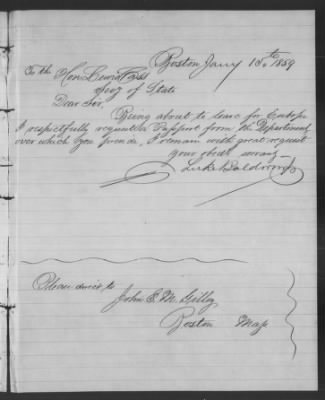 Boston Jany 10th 1859
To the Hon. Lewis Cass
Secy of State
Dear Sir,
Being about to leave for Europe
I respectfully request a Passport form the Department
over which you preside, I remain with great respect
your obdt servant
Luke Baldwin
Please direct to
John E. M. Gilley
Boston Mass